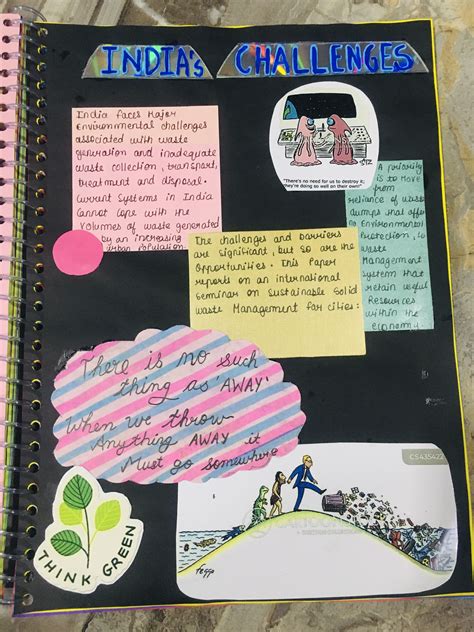 INDIA's CHALLENGES
India faces Major
Environmental challenges
associated with waste
generation and inadequate
waste collection, transport,
treatment and disposal.
Current Systems in India
Cannot cope with the
Volumes of waste generated
by an increasing
urban population
"There's no need for us to destroy it;
they're doing so well on their own!"
A priority
is to Move
from
reliance of waste
dumps that offer
no Environmental
Protection, to
waste
Management
System that
retain useful
Resources
within the
economy.
The challenges and barriers
are significant, but so are the
Opportunities. This Paper
reports on an international
Seminar on Sustainable Solid
waste Management for cities:
There is no such
thing as 'AWAY'
When we throw
Anything AWAY it
Must go somewhere
THINK GREEN
CS435422